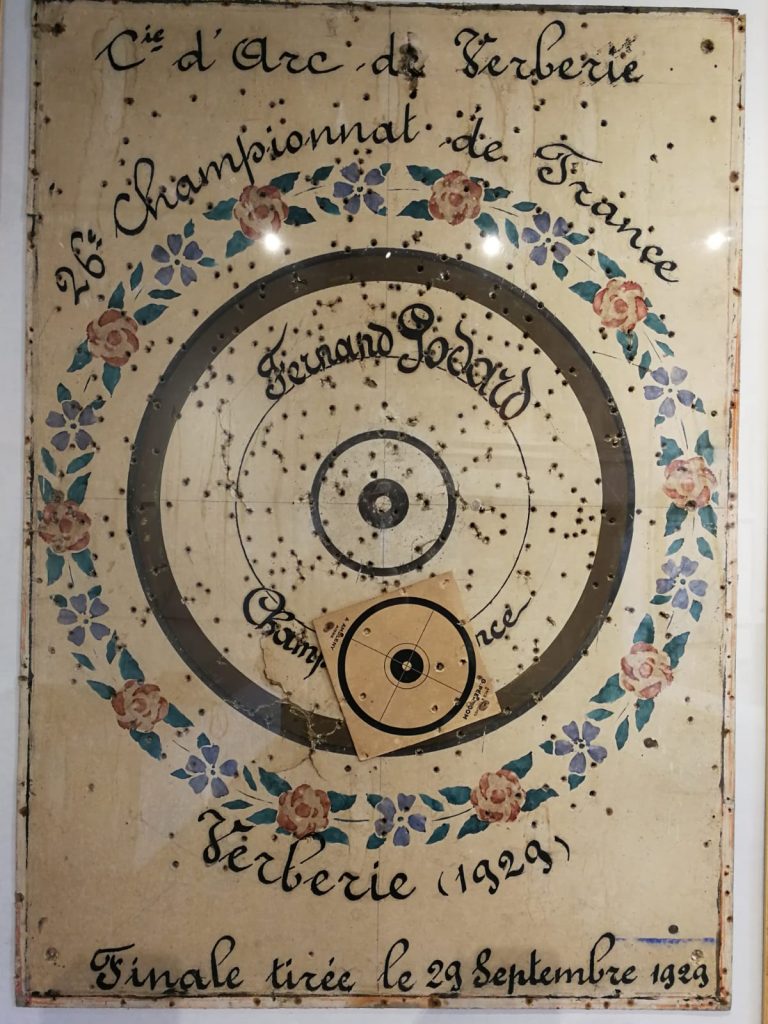 Cie d'Arc de Verberie
26e Championnat de France
Fernand Godard
Champ
rce
Verberie (1929)
Finale tirée le 29 Septembre 1929